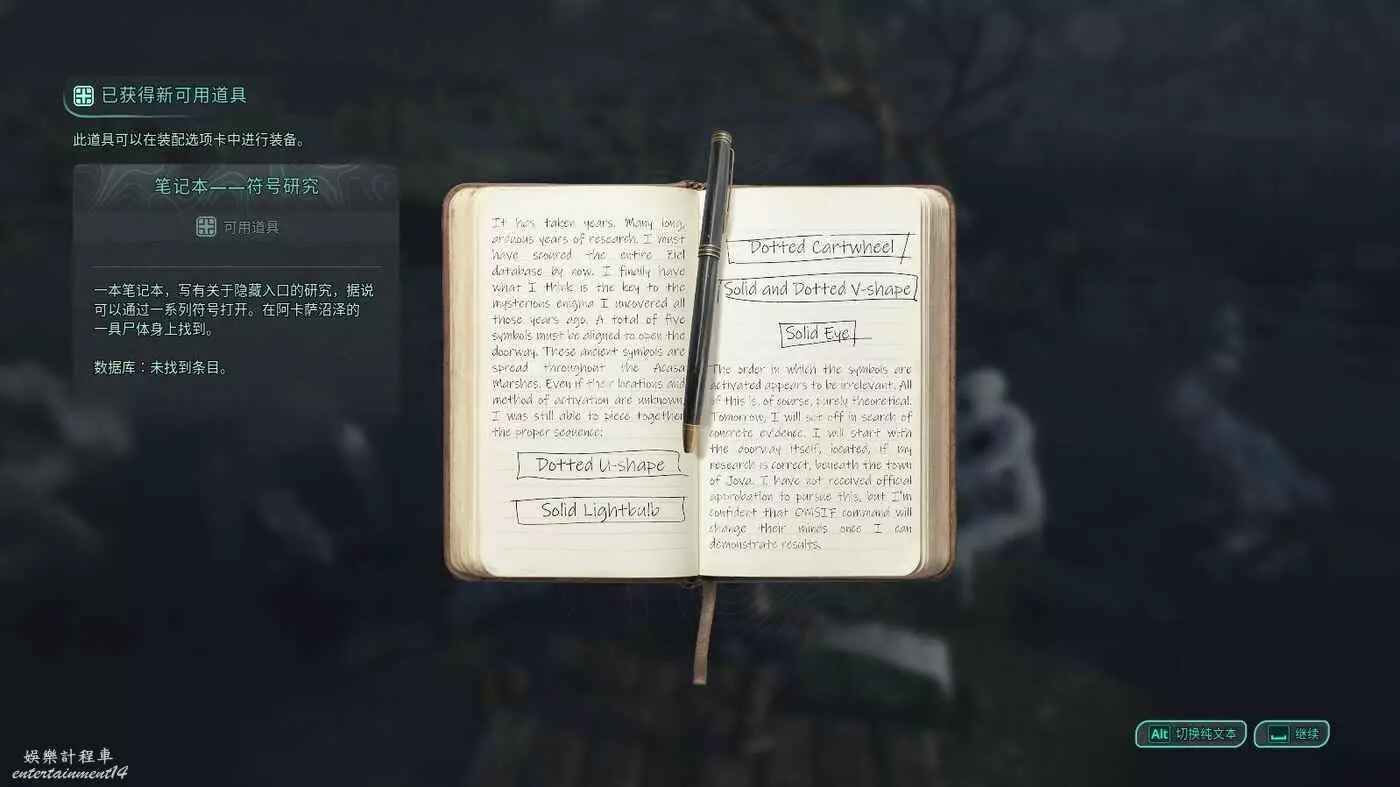 已获得新可用道具
此道具可以在装配选项卡中进行装备。
笔记本——符号研究
可用道具
一本笔记本，写有关于隐藏入口的研究，据说
可以通过一系列符号打开。在阿卡萨沼泽的
一具尸体身上找到。
数据库：未找到条目。
It has taken years. Many long,
arduous years of research. I must
have scoured the entire Riel
database by now. I finally have
what I think is the key to the
mysterious enigma I uncovered all
those years ago. A total of five
symbols must be aligned to open the
doorway. These ancient symbols are
spread throughout the Acasa
Marshes. Even if their locations and
method of activation are unknown,
I was still able to piece together
the proper sequence:
Dotted U-shape
Solid Lightbulb
Dotted Cartwheel
Solid and Dotted V-shape
Solid Eye
The order in which the symbols are
activated appears to be irrelevant. All
of this is, of course, purely theoretical.
Tomorrow, I will set off in search of
concrete evidence. I will start with
the doorway itself, located, if my
research is correct, beneath the town
of Jova. I have not received official
approbation to pursue this, but I'm
confident that OMSIF command will
change their minds once I can
demonstrate results.
Alt 切换纯文本
继续
娛樂計程車
entertainment14